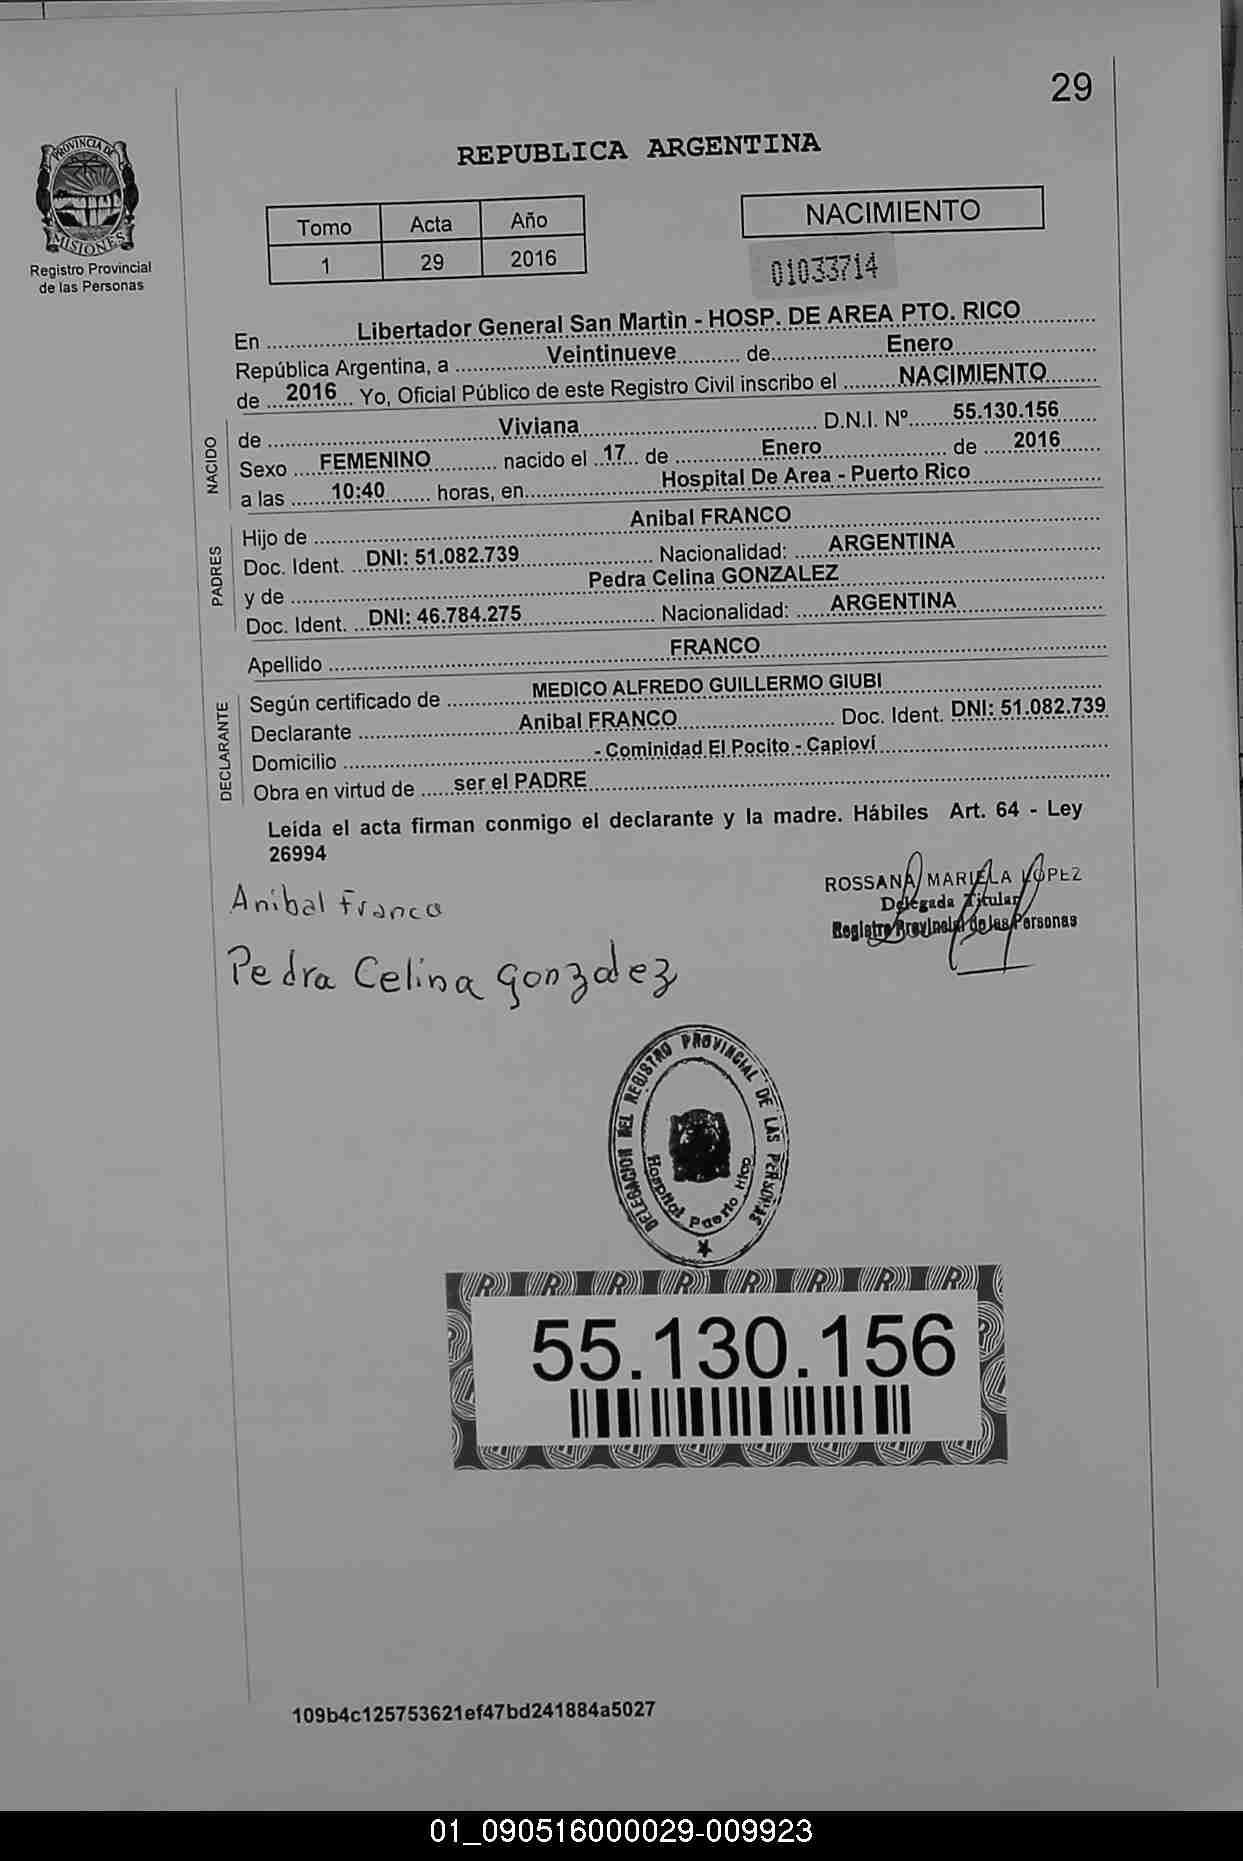 29
PROVINCIA DE
MISIONES
Registro Provincial
de las Personas
REPUBLICA ARGENTINA
Tomo Acta Año
1 29 2016
NACIMIENTO
01033714
En Libertador General San Martìn - HOSP. DE AREA PTO. RICO
República Argentina, a Veintinueve de Enero
de 2016 Yo, Oficial Público de este Registro Civil inscribo el NACIMIENTO
NACIDO
de Viviana D.N.I. Nº 55.130.156
Sexo FEMENINO nacido el 17 de Enero de 2016
a las 10:40 horas, en Hospital De Area - Puerto Rico
PADRES
Hijo de Anibal FRANCO
Doc. Ident. DNI: 51.082.739 Nacionalidad: ARGENTINA
y de Pedra Celina GONZALEZ
Doc. Ident. DNI: 46.784.275 Nacionalidad: ARGENTINA
Apellido FRANCO
DECLARANTE
Según certificado de MEDICO ALFREDO GUILLERMO GIUBI
Declarante Anibal FRANCO Doc. Ident. DNI: 51.082.739
Domicilio - Cominidad El Pocito - Capioví
Obra en virtud de ser el PADRE
Leída el acta firman conmigo el declarante y la madre. Hábiles Art. 64 - Ley
26994
Anibal Franco
Pedra Celina Gonzalez
ROSSANA MARIELA LOPEZ
Delegada Titular
Registro Provincial de las Personas
DELEGACION DEL REGISTRO PROVINCIAL DE LAS PERSONAS
Hospital Puerto Rico
55.130.156
109b4c125753621ef47bd241884a5027
01_090516000029-009923